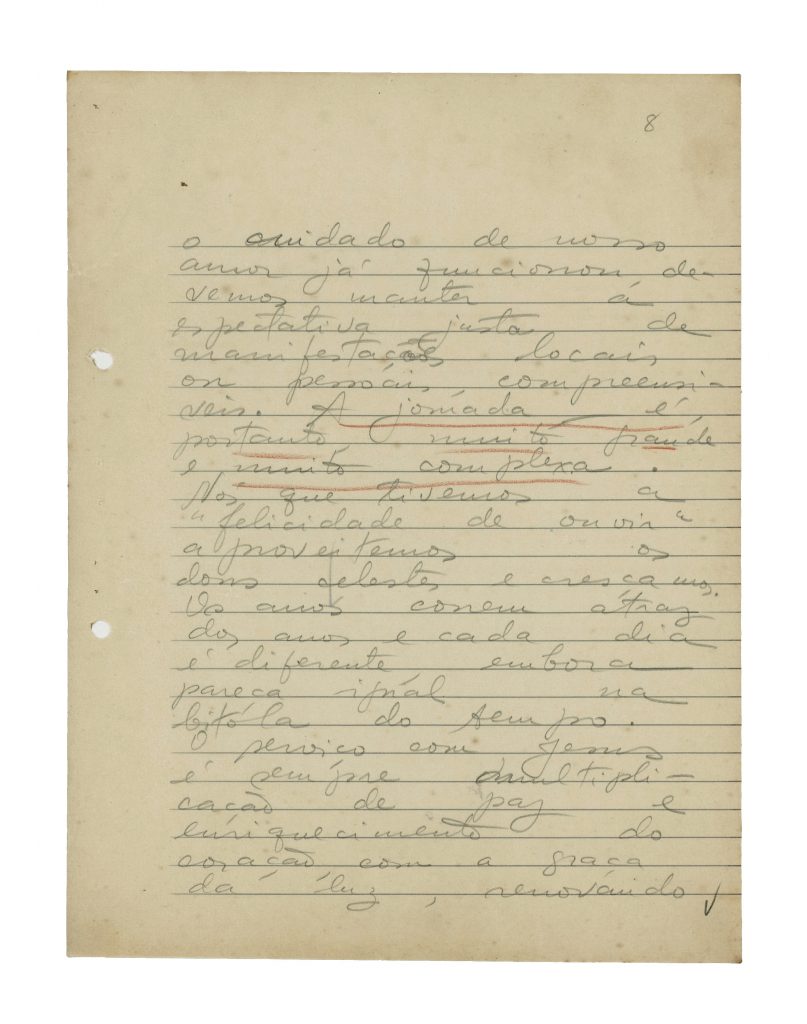 8
o cuidado de nosso
amor já funcionou de-
vemos manter á
espectativa justa de
manifestações locais
ou pessoáis, compreensi-
veis. A jornada é,
portanto, muito grande
e muito complexa.
Nós que tivemos a
"felicidade de ouvir"
aproveitemos os
dons celestes e cresçamos.
Os anos correm atraz
dos anos e cada dia
é diferente embora
pareca igual na
bitóla do tempo.
O serviço com Jesus
é sempre multipli-
cação de paz e
enriquecimento do
coração com a graça
da luz, renovando